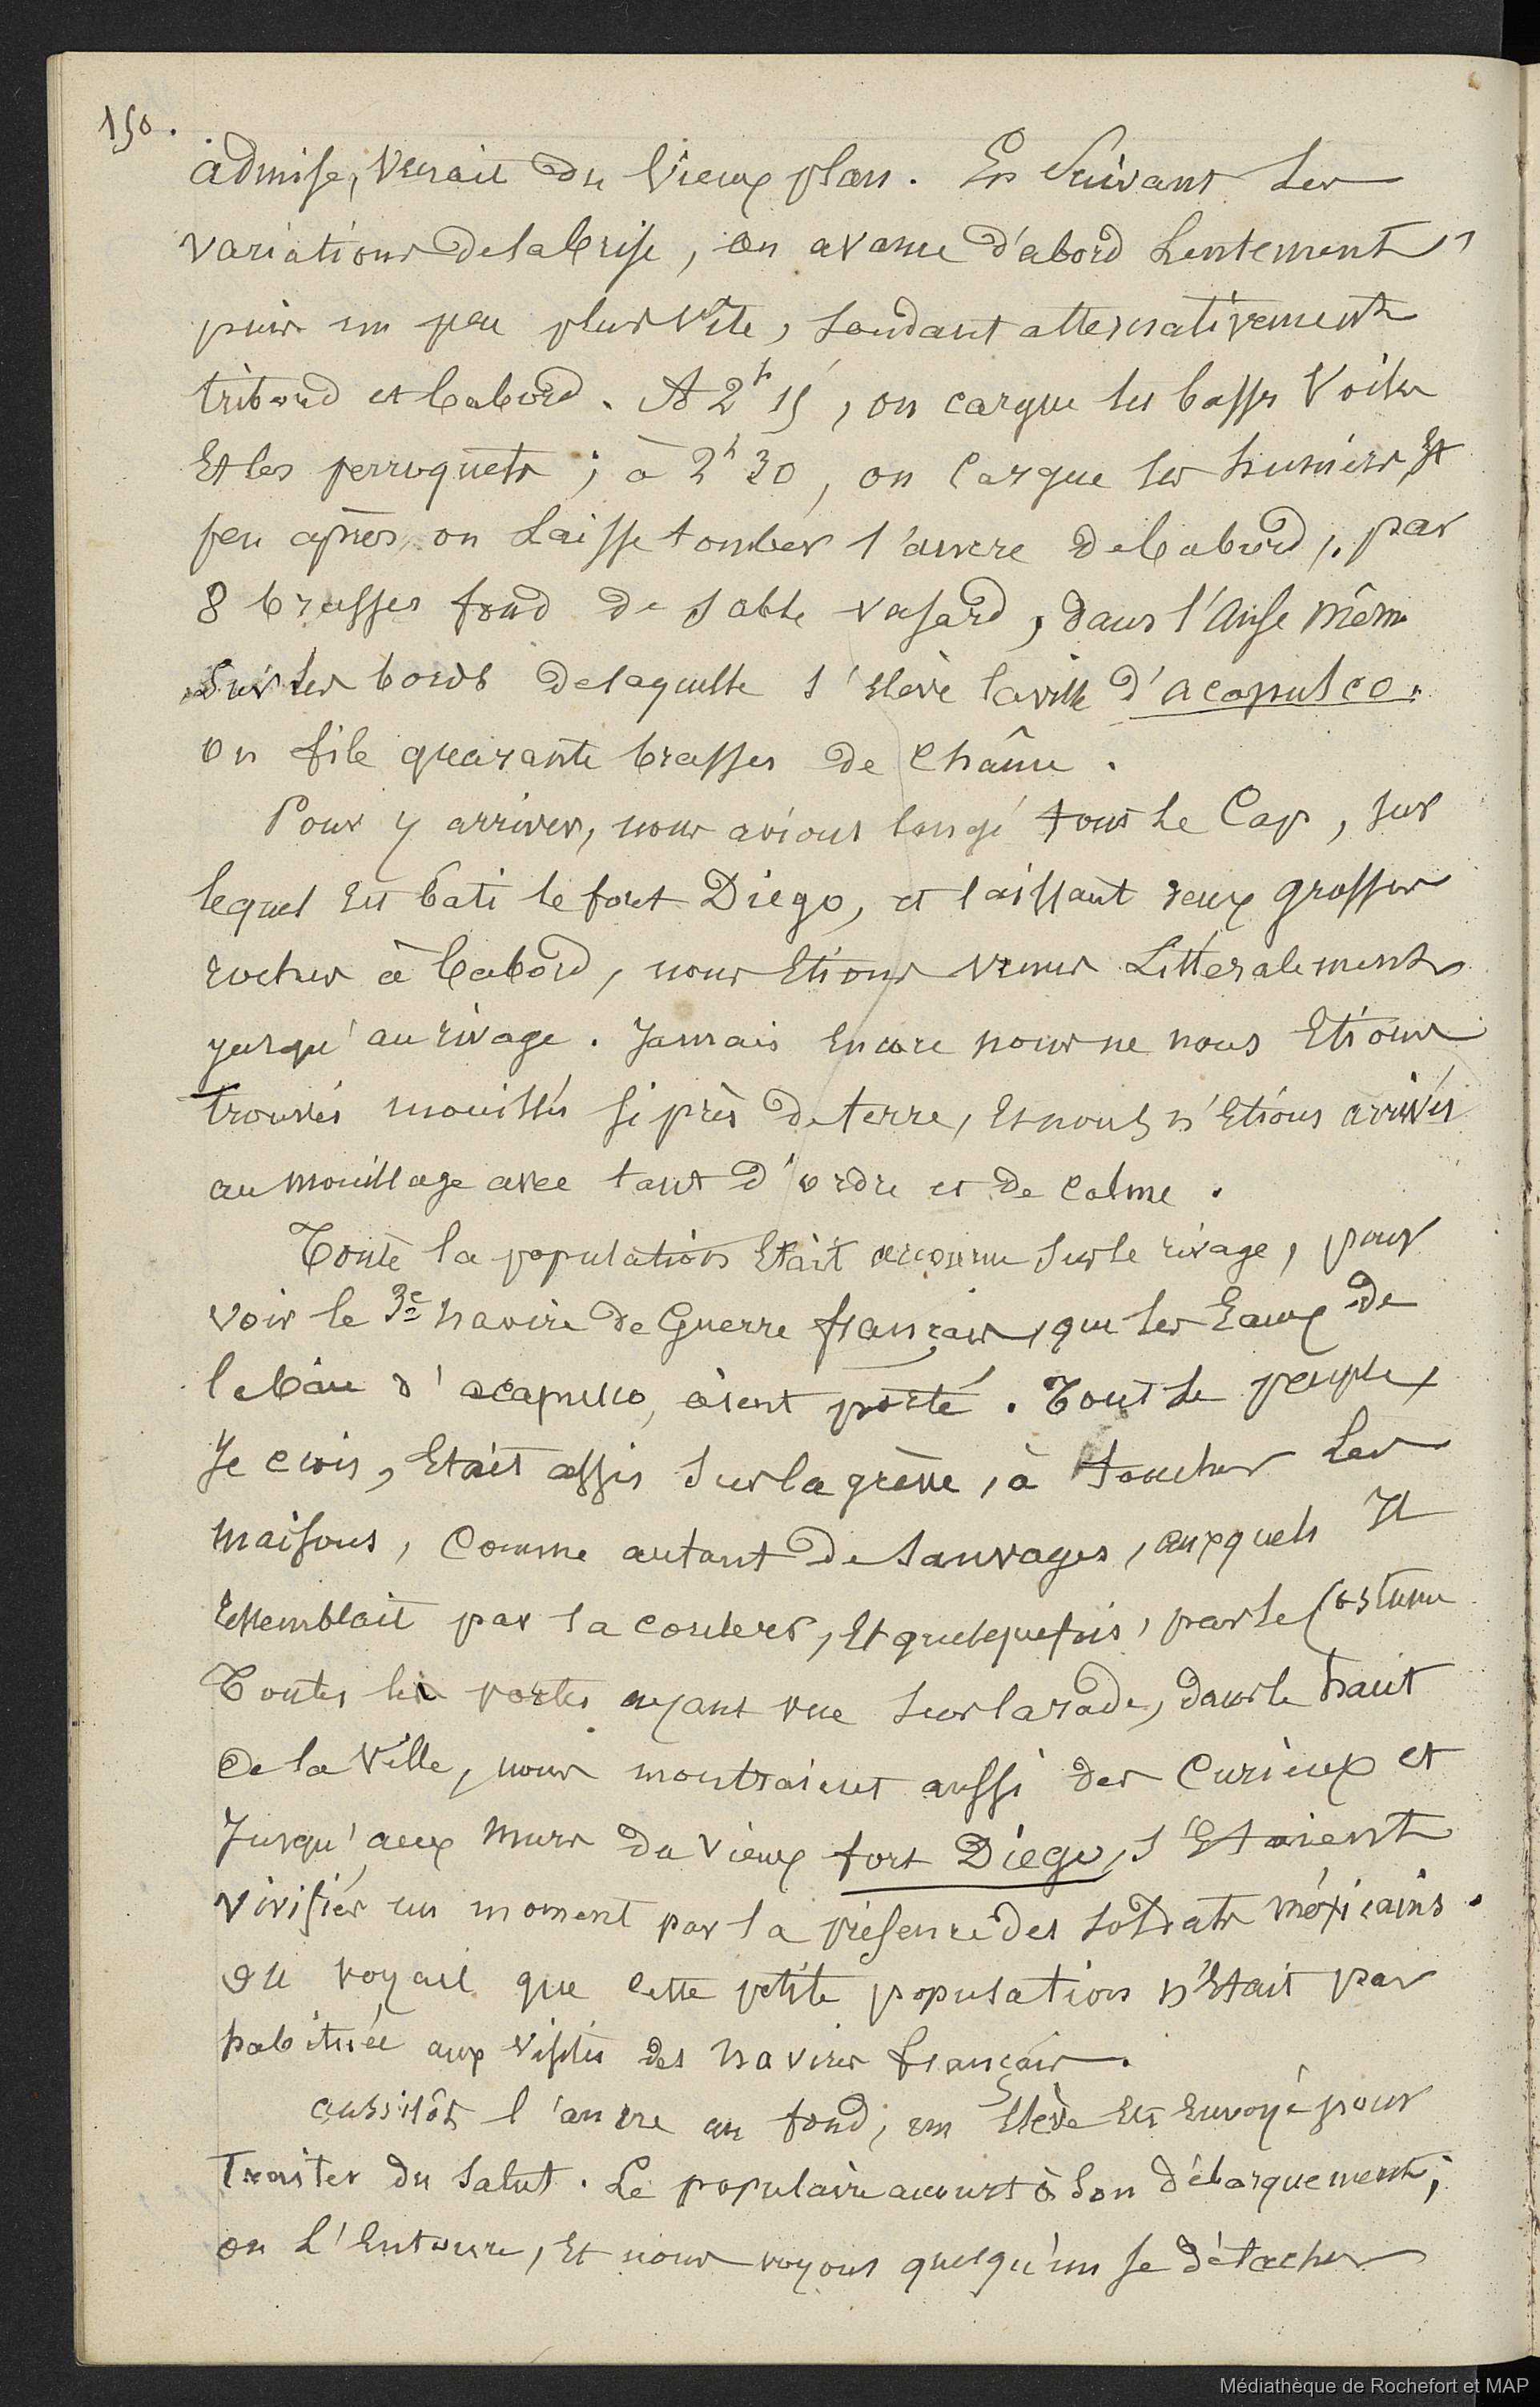 150.
admise, venait du vieux plan. En suivant les
variations de la brise, on avance d'abord lentement,
puis un peu plus vite, sondant alternativement
tribord et babord. A 2h 15, on cargue les basses voiles
Et les perroquets ; à 2h 30, on cargue les huniers, Et
peu après, on laisse tomber l'ancre de babord, par
8 brasses fond de sable vasard, dans l'anse même
sur les bords de laquelle s'élève la ville d'acapulco.
on file quarante brasses de chaîne.
Pour y arriver, nous avions longé tout le Cap, sur
lequel est bati le fort Diego, et laissant deux grosses
roches à babord, nous Etions venus littéralement
jusqu'au rivage. Jamais encore nous ne nous Etions
trouvés mouillés si près de terre, Et nous n'Etions arrivés
au mouillage avec tant d'ordre et de calme.
Toute la population Etait accourue sur le rivage, pour
voir le 3e navire de Guerre français, que les Eaux de
la baie d'acapulco, aient porté. Tout le peuple,
Je crois, Etait assis sur la grève, à toucher les
maisons, comme autant de sauvages, auxquels Il
ressemblait par la couleur, Et quelquefois, par le costume
Toutes les portes ayant vue sur la rade, dans le haut
de la Ville, nous montraient aussi des curieux et
Jusqu'aux murs du vieux fort Diego, s'Etaient
vivifiés un moment par la présence des soldats méxicains.
on voyait que cette petite population n'Etait pas
habituée aux visites des navires français.
aussitôt l'ancre au fond, un Elève Est Envoyé pour
Traiter du salut. Le populaire accourt à son débarquement ;
on l'Entoure, Et nous voyons quelqu'un se détacher
Médiathèque de Rochefort et MAP